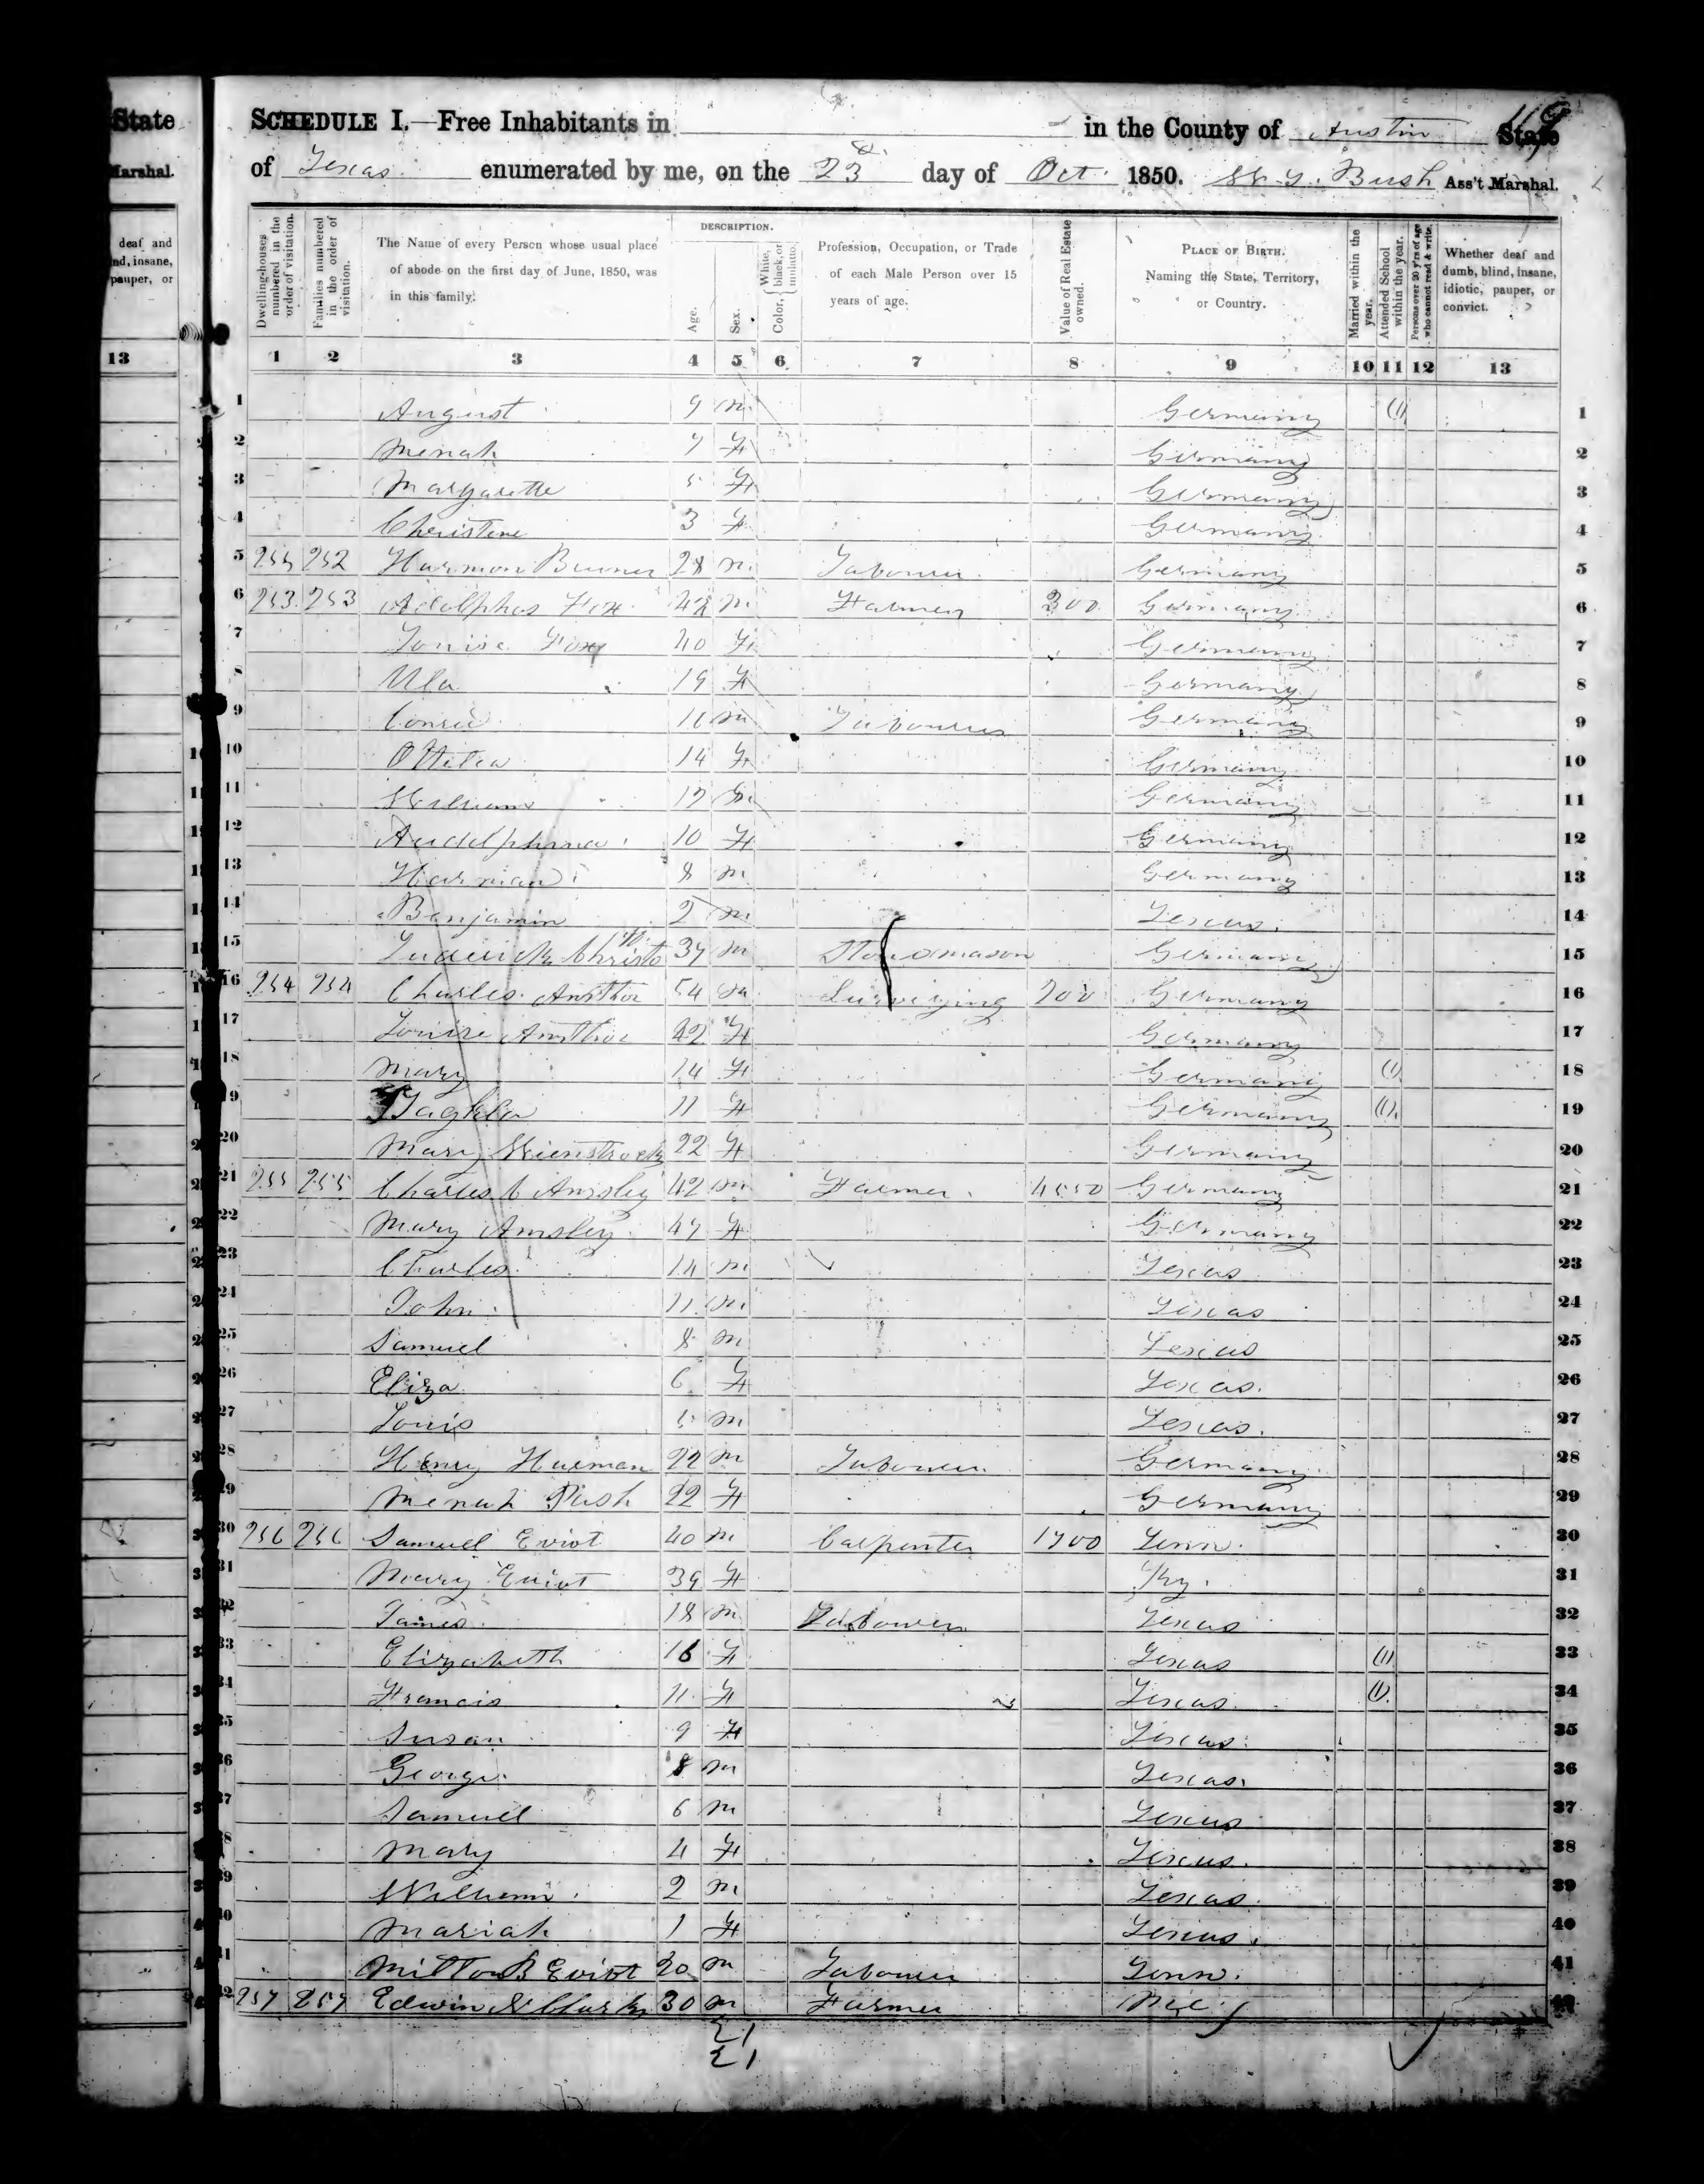 State
Marshal.
deaf and
nd, insane,
pauper, or
13
SCHEDULE I.—Free Inhabitants in in the County of Austin State
of Texas enumerated by me, on the 23d day of Oct. 1850. Bush Ass't Marshal.
Dwelling-houses numbered in the order of visitation.
Families numbered in the order of visitation.
The Name of every Person whose usual place of abode on the first day of June, 1850, was in this family.
DESCRIPTION.
Age.
Sex.
Color, { White, black, or mulatto.
Profession, Occupation, or Trade of each Male Person over 15 years of age.
Value of Real Estate owned.
PLACE OF BIRTH. Naming the State, Territory, or Country.
Married within the year.
Attended School within the year.
Persons over 20 y'rs of age who cannot read & write.
Whether deaf and dumb, blind, insane, idiotic, pauper, or convict.
1 2 3 4 5 6 7 8 9 10 11 12 13
1 August 9 m Germany (1) 1
2 Menah 7 F Germany 2
3 Margarette 5 F Germany 3
4 Christine 3 F Germany 4
5 252 Harmon 28 m. Labourer Germany 5
6 253 253 Adolphas Fox 42 m Farmer 300 Germany 6
7 Louisa Fox 40 F Germany 7
8 Ula 19 F Germany 8
9 Conrad 16 m Labourer Germany 9
10 Ottilia 14 F Germany 10
11 William 12 m Germany 11
12 10 F Germany 12
13 Harman 8 m Germany 13
14 Benjamin 2 m Texas. 14
15 37 m Stonemason Germany 15
16 254 254 Charles Amsthor 54 m Surveying 200 Germany 16
17 Louise Amsthor 42 F Germany 17
18 Mary 14 F Germany (1) 18
19 11 F Germany (1). 19
20 Mary 22 F Germany 20
21 255 255 Charles C Amsley 42 m Farmer. Germany 21
22 Mary Amsley 47 F Germany 22
23 Charles 14 m Texas 23
24 John 11 m Texas 24
25 Samuel 8 m Texas 25
26 Eliza 6 F Texas. 26
27 Louis 5 m Texas. 27
28 Henry Harman 22 m Labourer Germany 28
29 Menah 22 F Germany 29
30 256 256 Samuel Eviot 40 m Carpenter 1700 Tenn. 30
31 Mary Eviot 39 F Ky. 31
32 James 18 m Labourer Texas 32
33 Elizabeth 16 F Texas (1) 33
34 Francis 11 F Texas. (1). 34
35 Susan 9 F Texas. 35
36 George 8 m Texas. 36
37 Samuel 6 m Texas 37
38 Mary 4 F Texas. 38
39 William 2 m Texas. 39
40 Mariah 1 F Texas. 40
41 Milton B Eviot 20 m Labourer Tenn. 41
42 257 257 Edwin W Clark 30 m Farmer 42